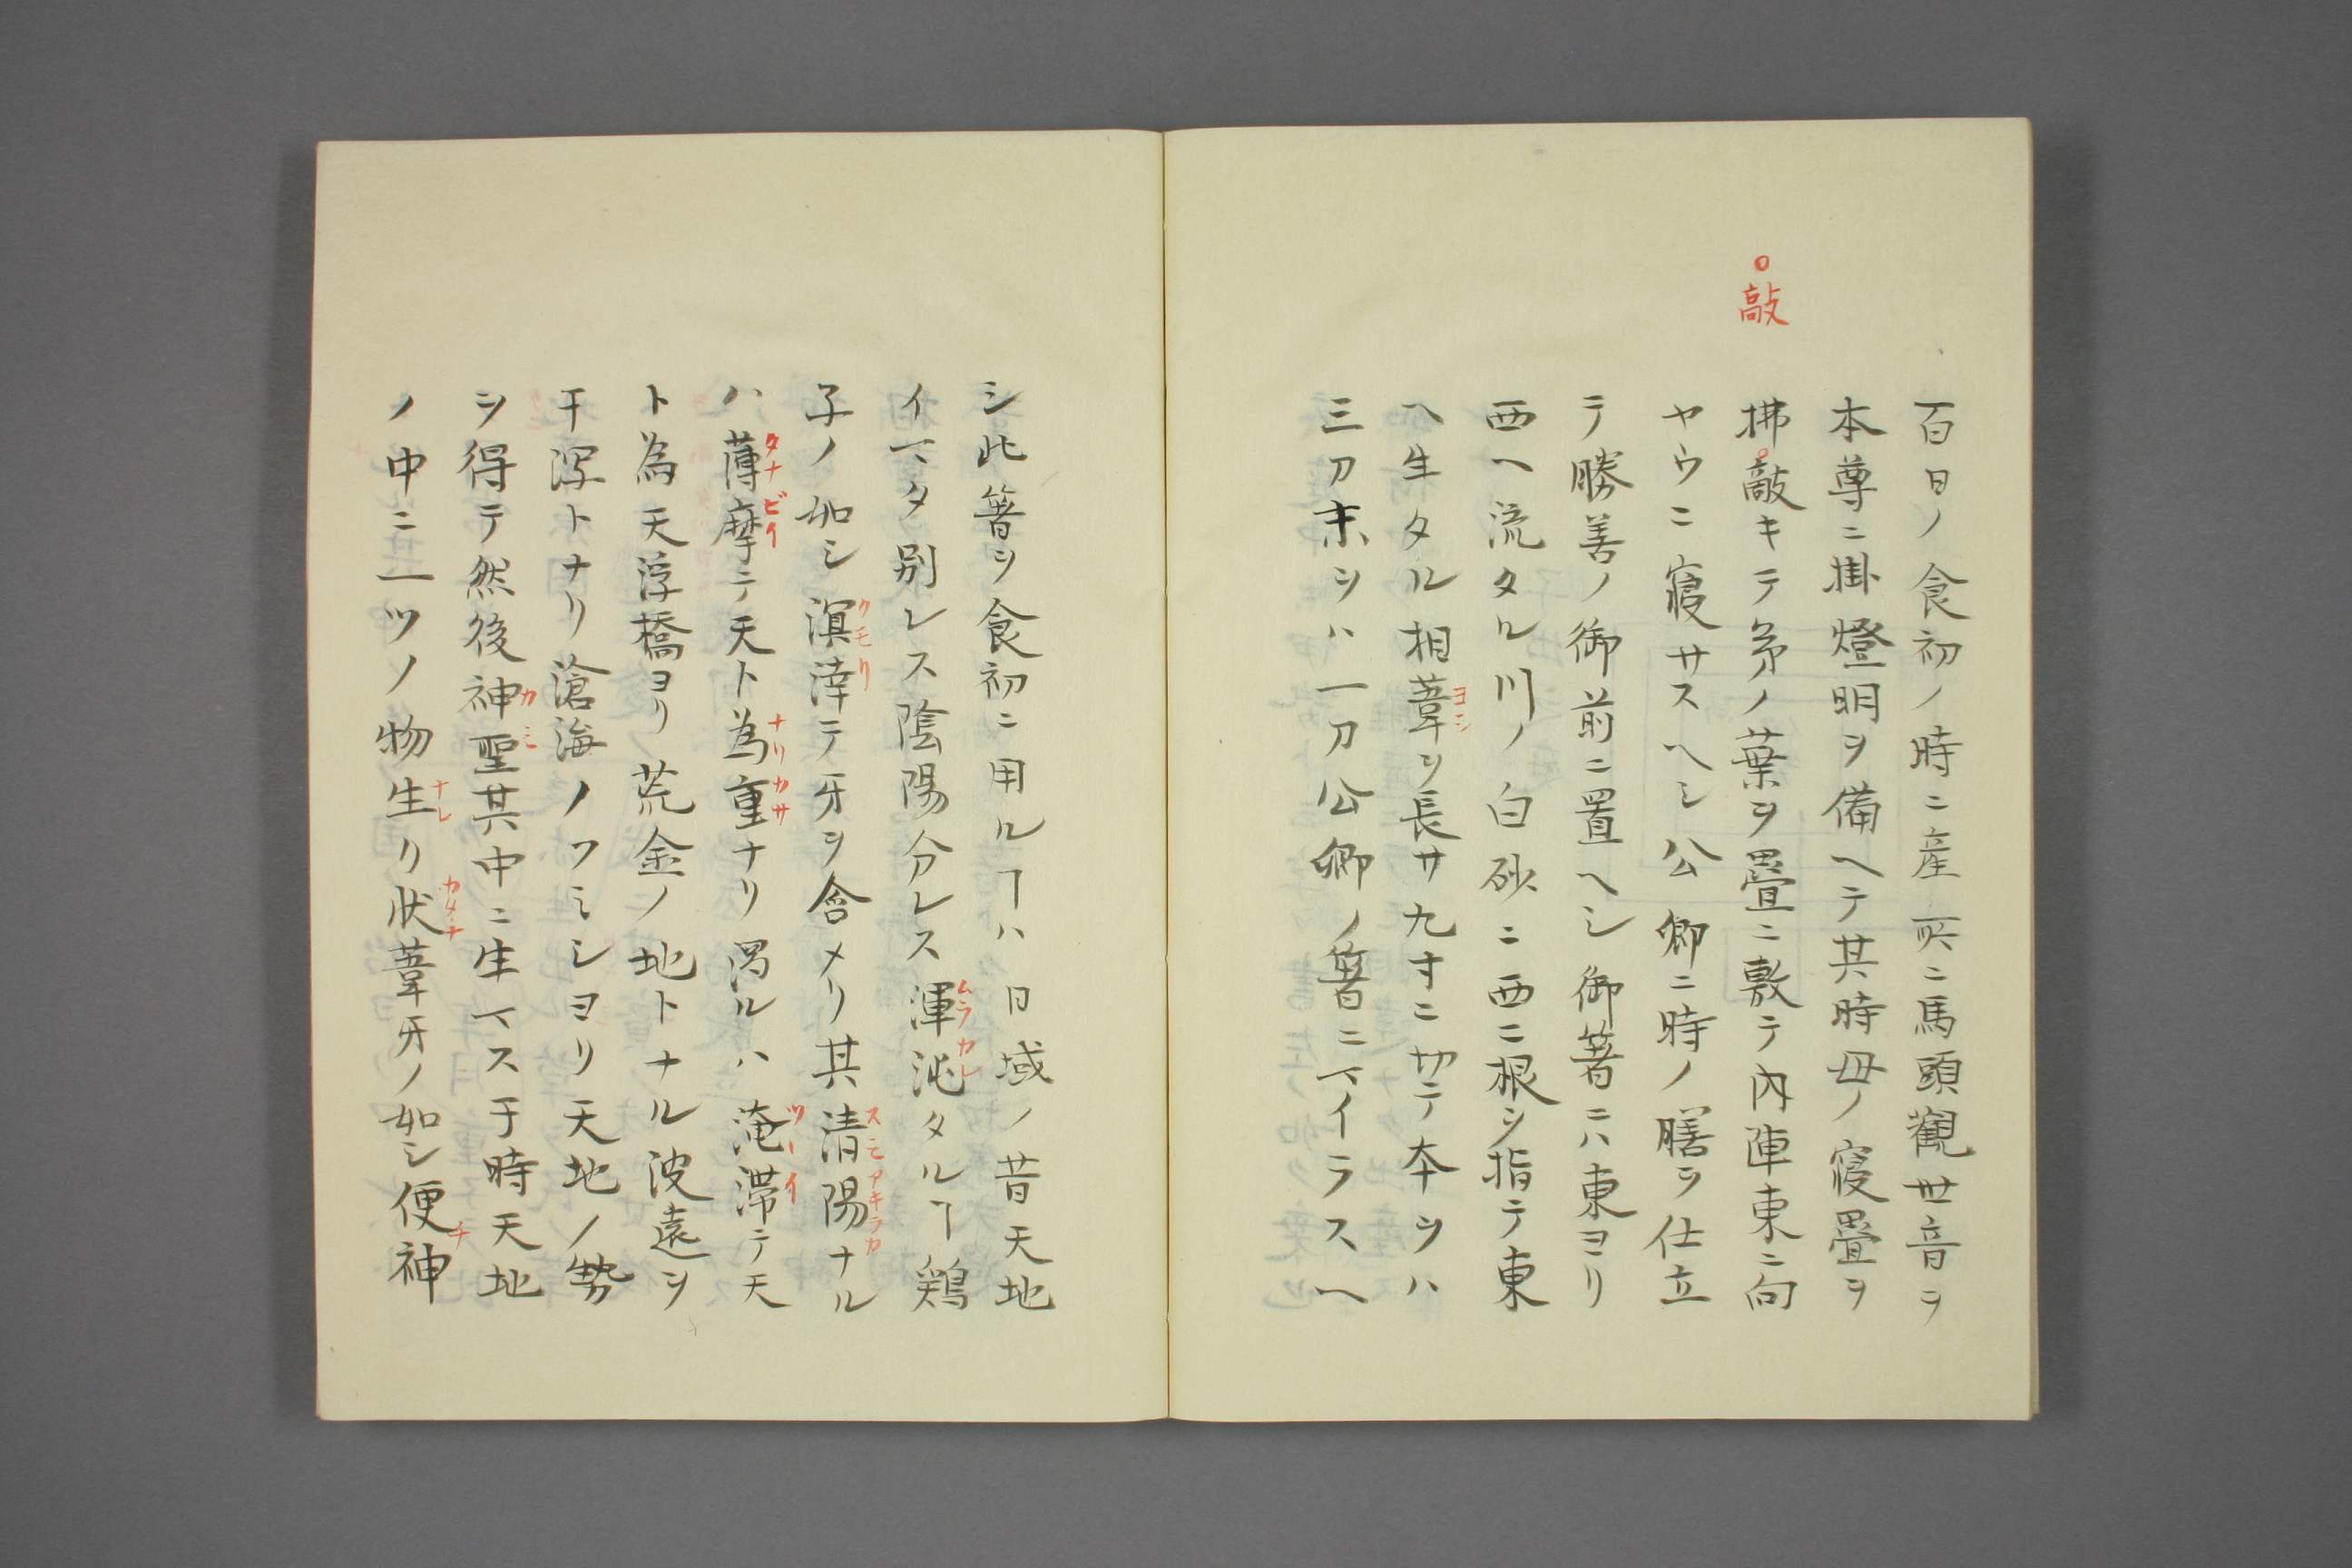 ○敲
百日ノ食初ノ時ニ産所ニ馬頭觀世音ヲ
本尊ニ掛燈明ヲ備ヘテ其時母ノ寝畳ヲ
拂敲キテ茅ノ葉ヲ畳ニ敷テ内陣東ニ向
ヤウニ寝サスヘシ公卿ニ時ノ膳ヲ仕立
テ勝善ノ御前ニ置ヘシ御箸ニハ東ヨリ
西ヘ流タル川ノ白砂ニ西ニ根ヲ指テ東
ヘ生タル相葦ヲ長サ九寸ニ切テ本ヲハ
三刀末ヲハ一刀公卿ノ箸ニマイラスヘ
シ此箸ヲ食初ニ用ルヿハ日域ノ昔天地
イマタ別レス陰陽分レス渾沌タルヿ鶏
子ノ如シ溟涬テ牙ヲ含メリ其清陽ナル
ハ薄摩テ天ト為重ナリ濁ルハ淹滞テ天
ト為天浮橋ヨリ荒金ノ地トナル波遠ヲ
干潟トナリ滄海ノフミシヨリ天地ノ勢
ヲ得テ然後神聖其中ニ生マス于時天地
ノ中ニ一ツノ物生リ状葦牙ノ如シ便神